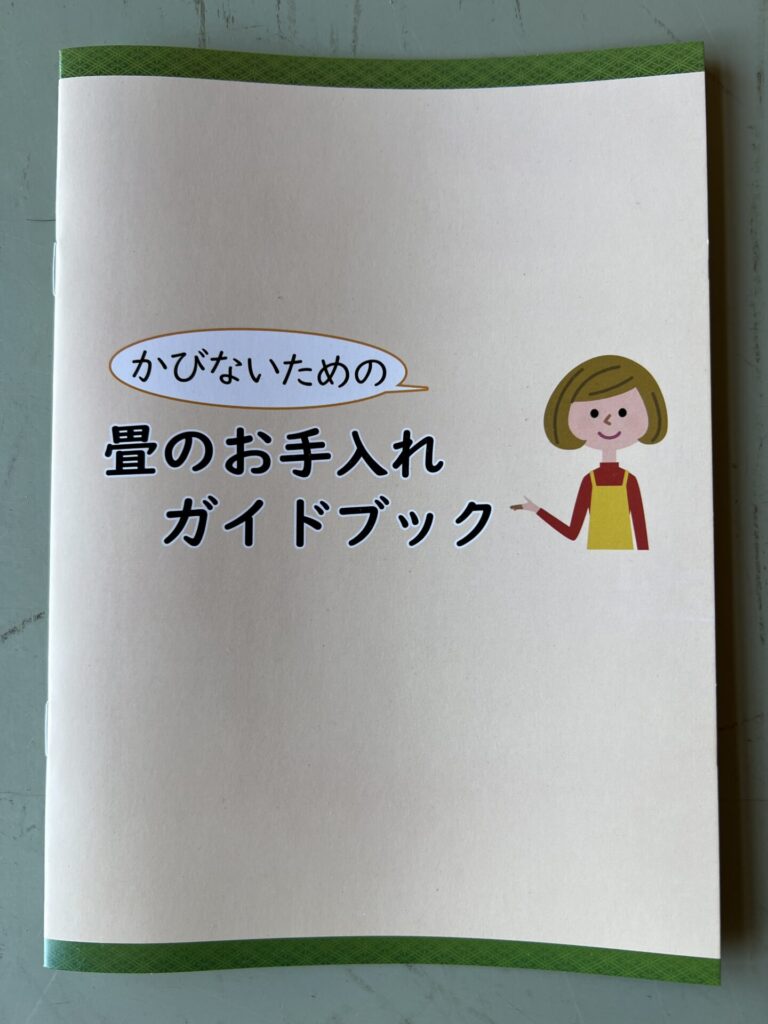 かびないための
畳のお手入れ
ガイドブック